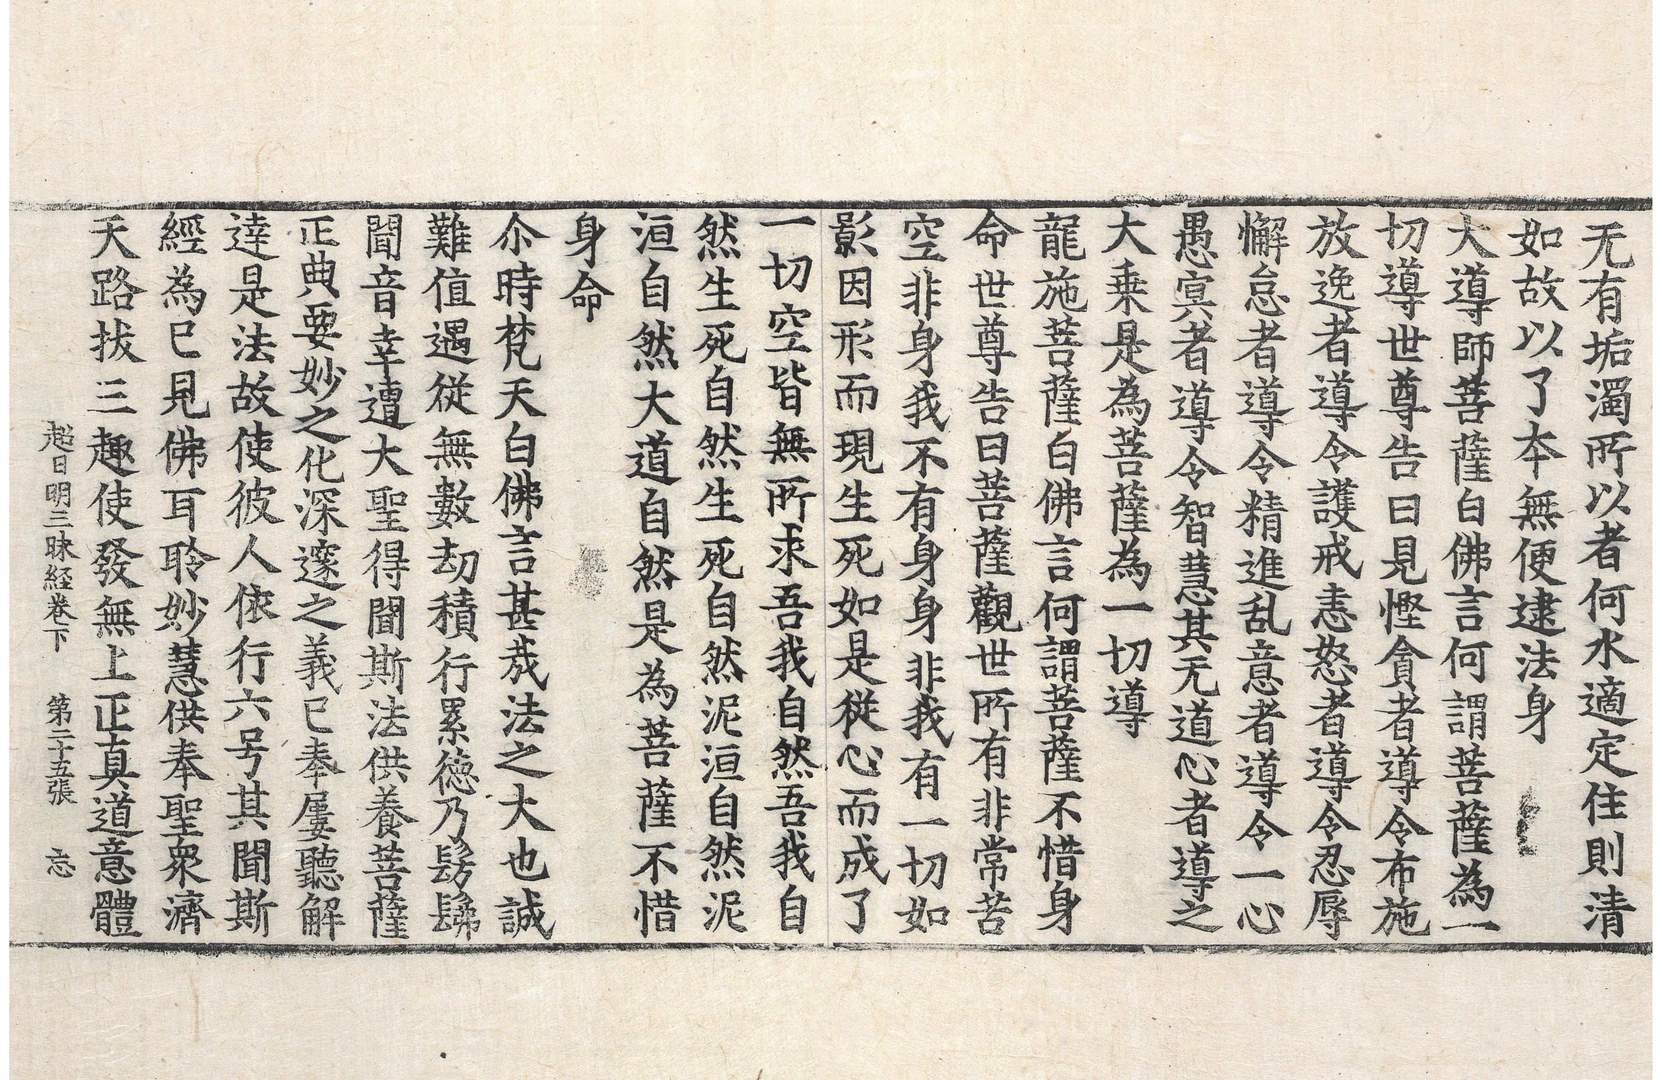 无有垢濁所以者何水適定住則清
如故以了本無便逮法身
大導師菩薩白佛言何謂菩薩為一
切導世尊告曰見慳貪者導令布施
放逸者導令護戒恚怒者導令忍辱
懈怠者導令精進乱意者導令一心
愚冥者導令智慧其无道心者導之
大乗是為菩薩為一切導
龍施菩薩白佛言何謂菩薩不惜身
命世尊告曰菩薩觀世所有非常苦
空非身我不有身身非我有一切如
影因形而現生死如是從心而成了
一切空皆無所求吾我自然吾我自
然生死自然生死自然泥洹自然泥
洹自然大道自然是為菩薩不惜
身命
尒時梵天白佛言甚㢤法之大也誠
難值遇從無數劫積行累德乃髣髴
聞音幸遭大聖得聞斯法供養菩薩
正典要妙之化深邃之義已奉屢聽解
達是法故使彼人依行六号其聞斯
經為已見佛耳聆妙慧供奉聖衆濟
天路拔三趣使發無上正真道意體
超日明三昧経卷下 第二十五張 忘